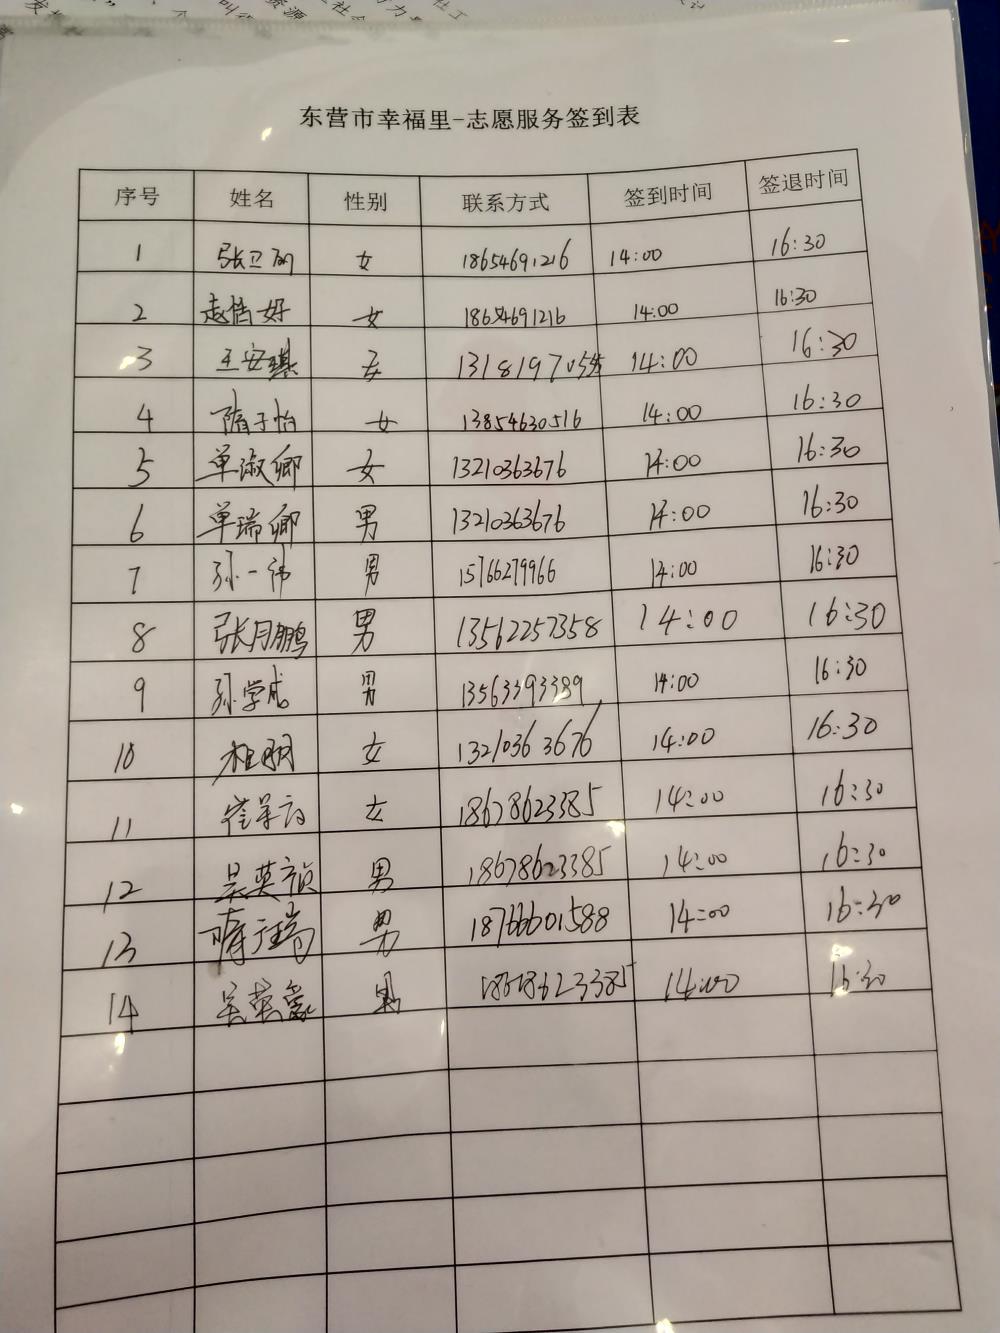 东营市幸福里-志愿服务签到表
序号 姓名 性别 联系方式 签到时间 签退时间
1 张卫丽 女 18654691216 14:00 16:30
2 赵恬好 女 18654691216 14:00 16:30
3 王安琪 女 14:00 16:30
4 隋子怡 女 13854630516 14:00 16:30
5 单淑卿 女 13210363676 14:00 16:30
6 单瑞卿 男 13210363676 14:00 16:30
7 孙一祎 男 15766279966 14:00 16:30
8 张月鹏 男 13562257358 14:00 16:30
9 孙学成 男 13563393389 14:00 16:30
10 女 13210363676 14:00 16:30
11 女 18678623385 14:00 16:30
12 吴英祯 男 18678623385 14:00 16:30
13 男 18766601588 14:00 16:30
14 吴英豪 男 18678623385 14:00 16:30